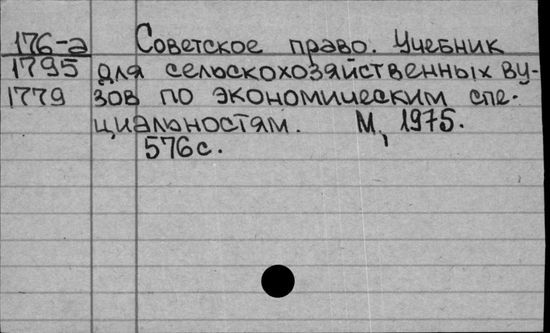 176-а Советское право. Учебник
1795 для сельскохозяйственных ву-
1779 зов по экономическим спе-
циальностям. М, 1975.
576с.